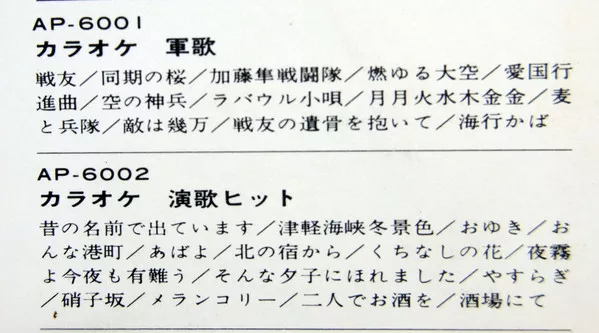 AP-6001
カラオケ　軍歌
戦友／同期の桜／加藤隼戦闘隊／燃ゆる大空／愛国行
進曲／空の神兵／ラバウル小唄／月月火水木金金／麦
と兵隊／敵は幾万／戦友の遺骨を抱いて／海行かば
AP-6002
カラオケ　演歌ヒット
昔の名前で出ています／津軽海峡冬景色／おゆき／お
んな港町／あばよ／北の宿から／くちなしの花／夜霧
よ今夜も有難う／そんな夕子にほれました／やすらぎ
／硝子坂／メランコリー／二人でお酒を／酒場にて